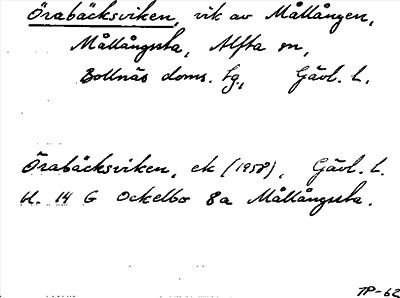 Örabäcksviken, vik av Mållången,
Mållångsta, Alfta sn,
Bollnäs doms. tg, Gävl. l.
Örabäcksviken, ek (1958), Gävl. l.
bl. 14 G Ockelbo 8a Mållångsta.
TP-62